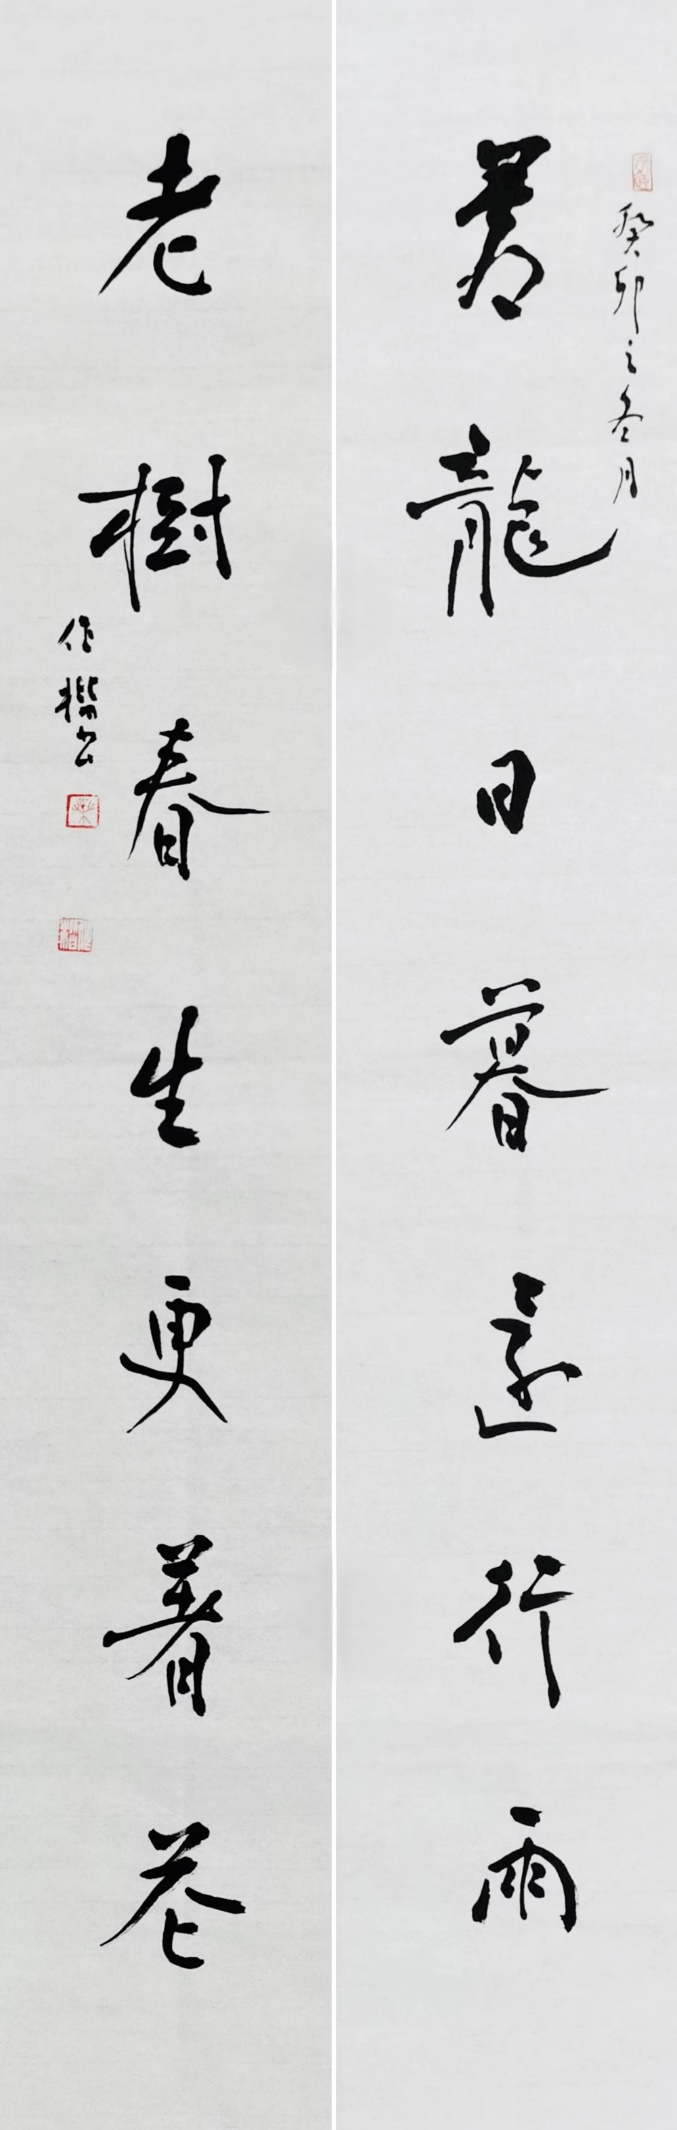 癸卯之冬月
蒼龍日暮還行雨
老樹春生更著花
作楷书